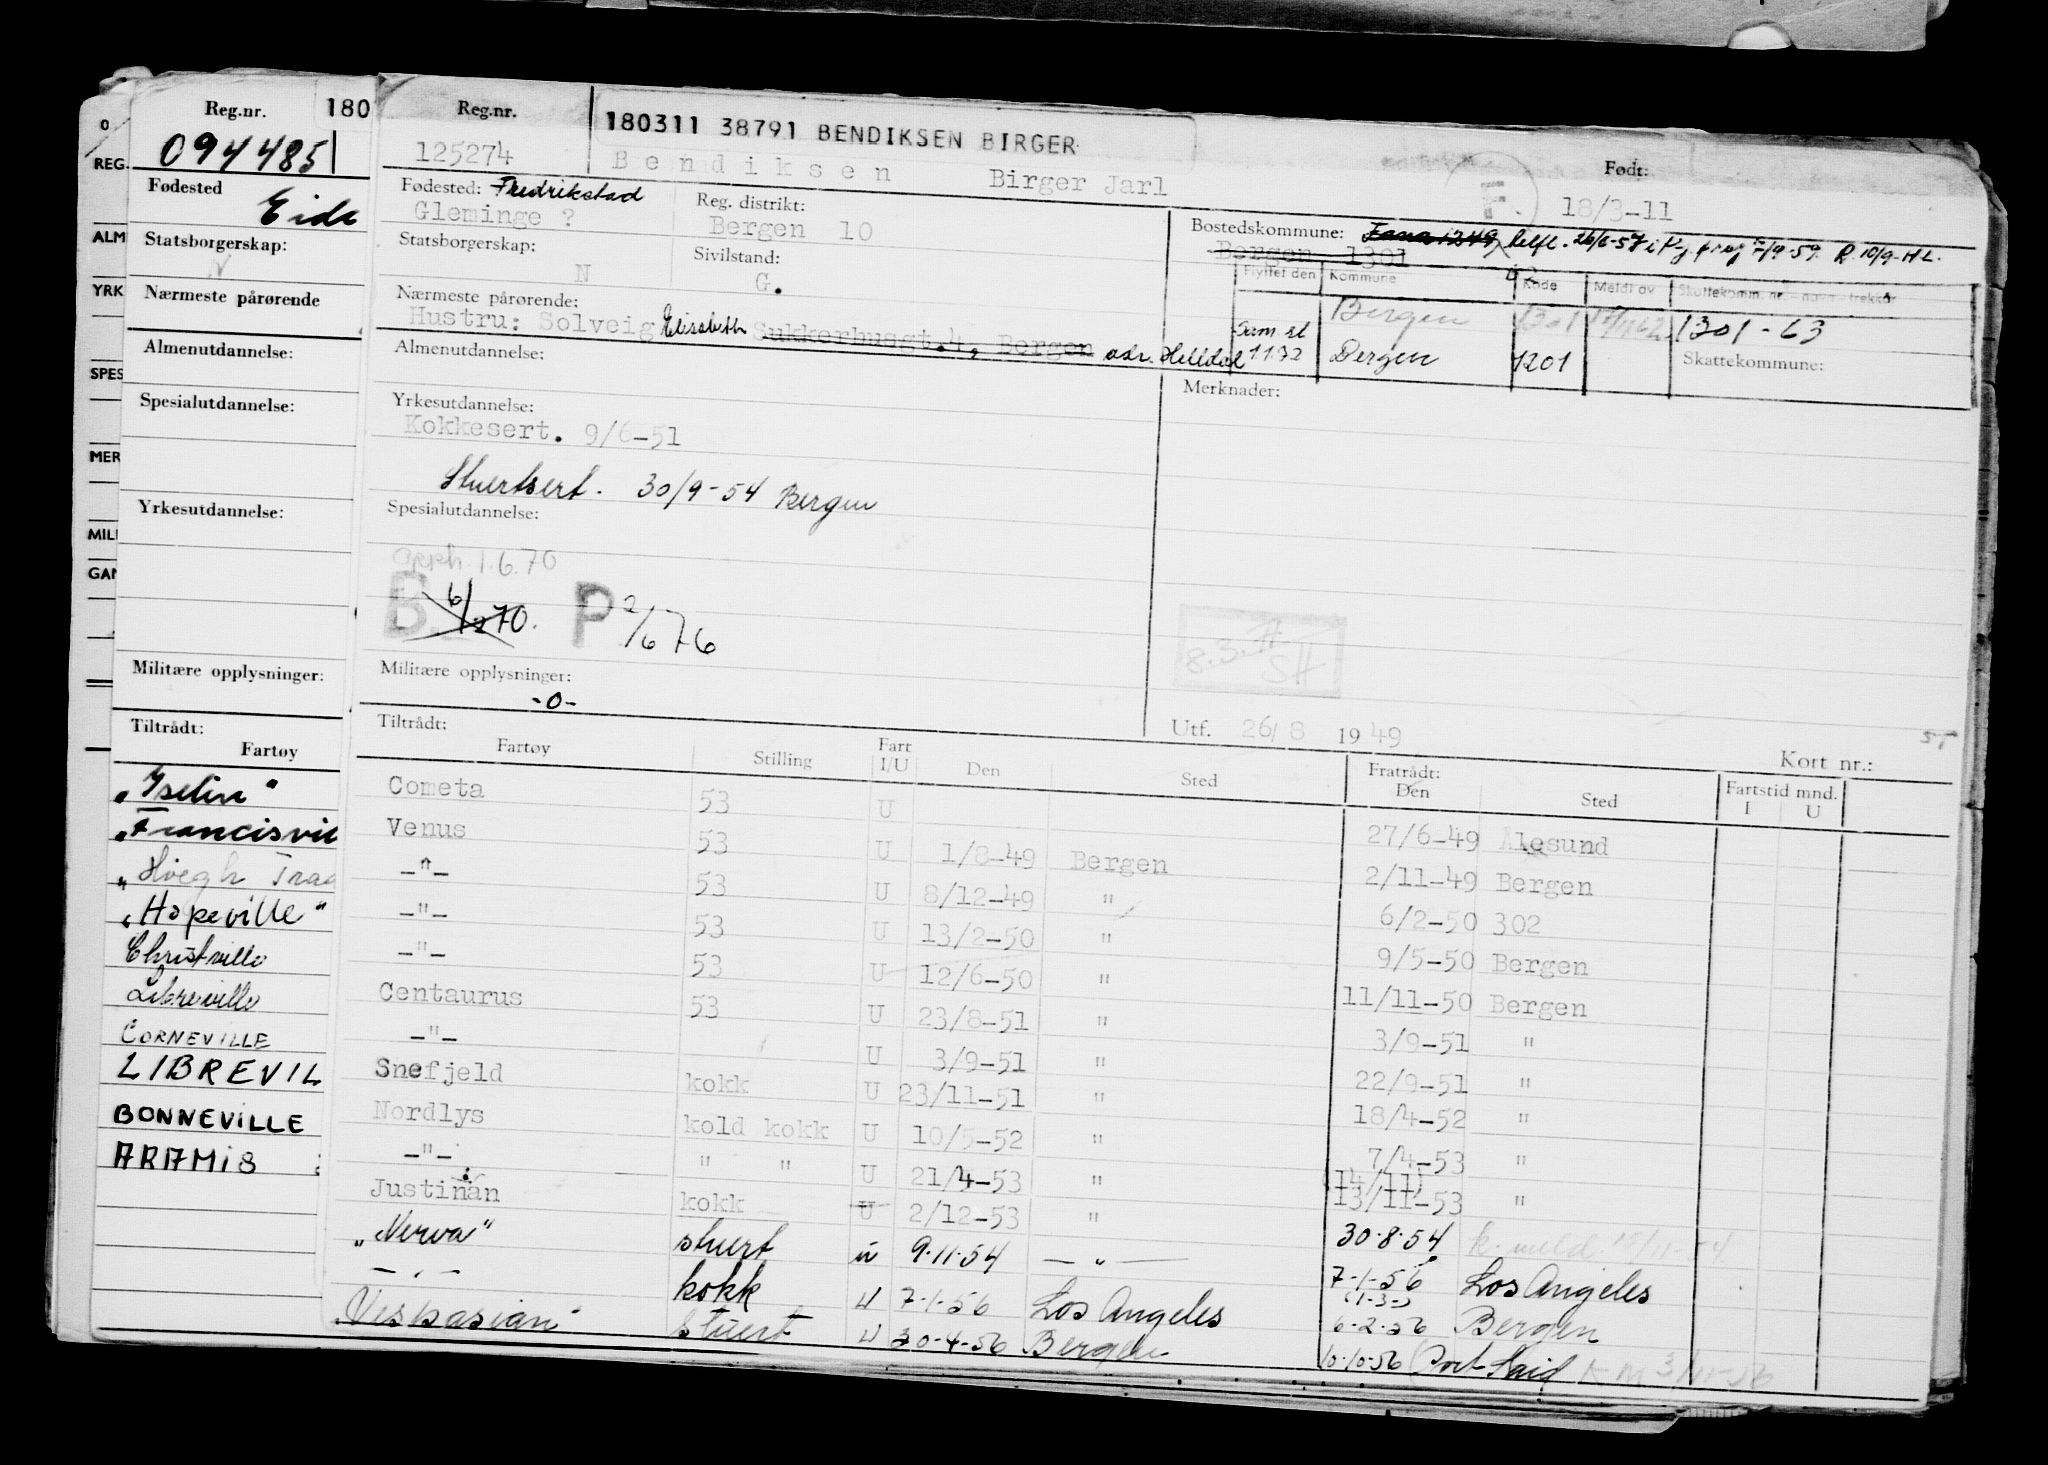 O
REG.
ALM
YRK
SPES
MER
MILI
GAN
Reg.nr. 180
094485
Fødested
Eide
Statsborgerskap:
Nærmeste pårørende
Almenutdannelse:
Spesialutdannelse:
Yrkesutdannelse:
Militære opplysninger:
Tiltrådt:
Fartøy
"Iselin"
"Francisvil
"Høegh Trad
"Hopeville"
Christville
Libreville
CORNEVILLE
LIBREVIL
BONNEVILLE
ARAMIS
Reg.nr.
125274
180311 38791 BENDIKSEN BIRGER
Bendiksen Birger Jarl
Født:
F.
18/3-11
Fødested: Fredrikstad
Gleminge ?
Reg. distrikt:
Bergen 10
Bostedskommune: Fana 1249
Bergen 1301
Statsborgerskap:
N
Sivilstand:
G.
Flyttet den Kommune Kode Meldt av Skattekomm. nr. - navn - trekkår
Bergen 1301 1301-63
Sam.st 1172 Bergen 1201
Skattekommune:
Nærmeste pårørende:
Hustru: Solveig Elisabeth Sukkerhusgt.4, Bergen adr. Helldal
Almenutdannelse:
Merknader:
Yrkesutdannelse:
Kokkesert. 9/6-51
Stuertsert. 30/9-54 Bergen
Spesialutdannelse:
opph. 1.6.70
B 6/270. P 2/6 76
8.3. SH
Militære opplysninger:
-0-
Utf. 26/8 1949
Kort nr.:
Tiltrådt: Fratrådt:
Fartøy Stilling Fart I/U Den Sted Den Sted Fartstid mnd. I U
Cometa 53 U 27/6-49 Ålesund
Venus 53 U 1/8-49 Bergen 2/11-49 Bergen
-"- 53 U 8/12-49 " 6/2-50 302
-"- 53 U 13/2-50 " 9/5-50 Bergen
-"- 53 U 12/6-50 " 11/11-50 Bergen
Centaurus 53 U 23/8-51 " 3/9-51 "
-"- U 3/9-51 " 22/9-51 "
Snefjeld kokk U 23/11-51 " 18/4-52 "
Nordlys kold kokk U 10/5-52 " 7/4-53 "
-"- " " U 21/4-53 " (14/11) 13/11-53 "
Justinan kokk U 2/12-53 " 30.8.54 k. meld. 15/11-54
"Nerva" stuert u 9.11.54 — " — 7-1-56 Los Angeles
-"- kokk U 7-1-56 Los Angeles (1-3-) 6-2-56 Bergen
Vespasian stuert U 30-4-56 Bergen 10-10-56 Port Said KM 3/11-56